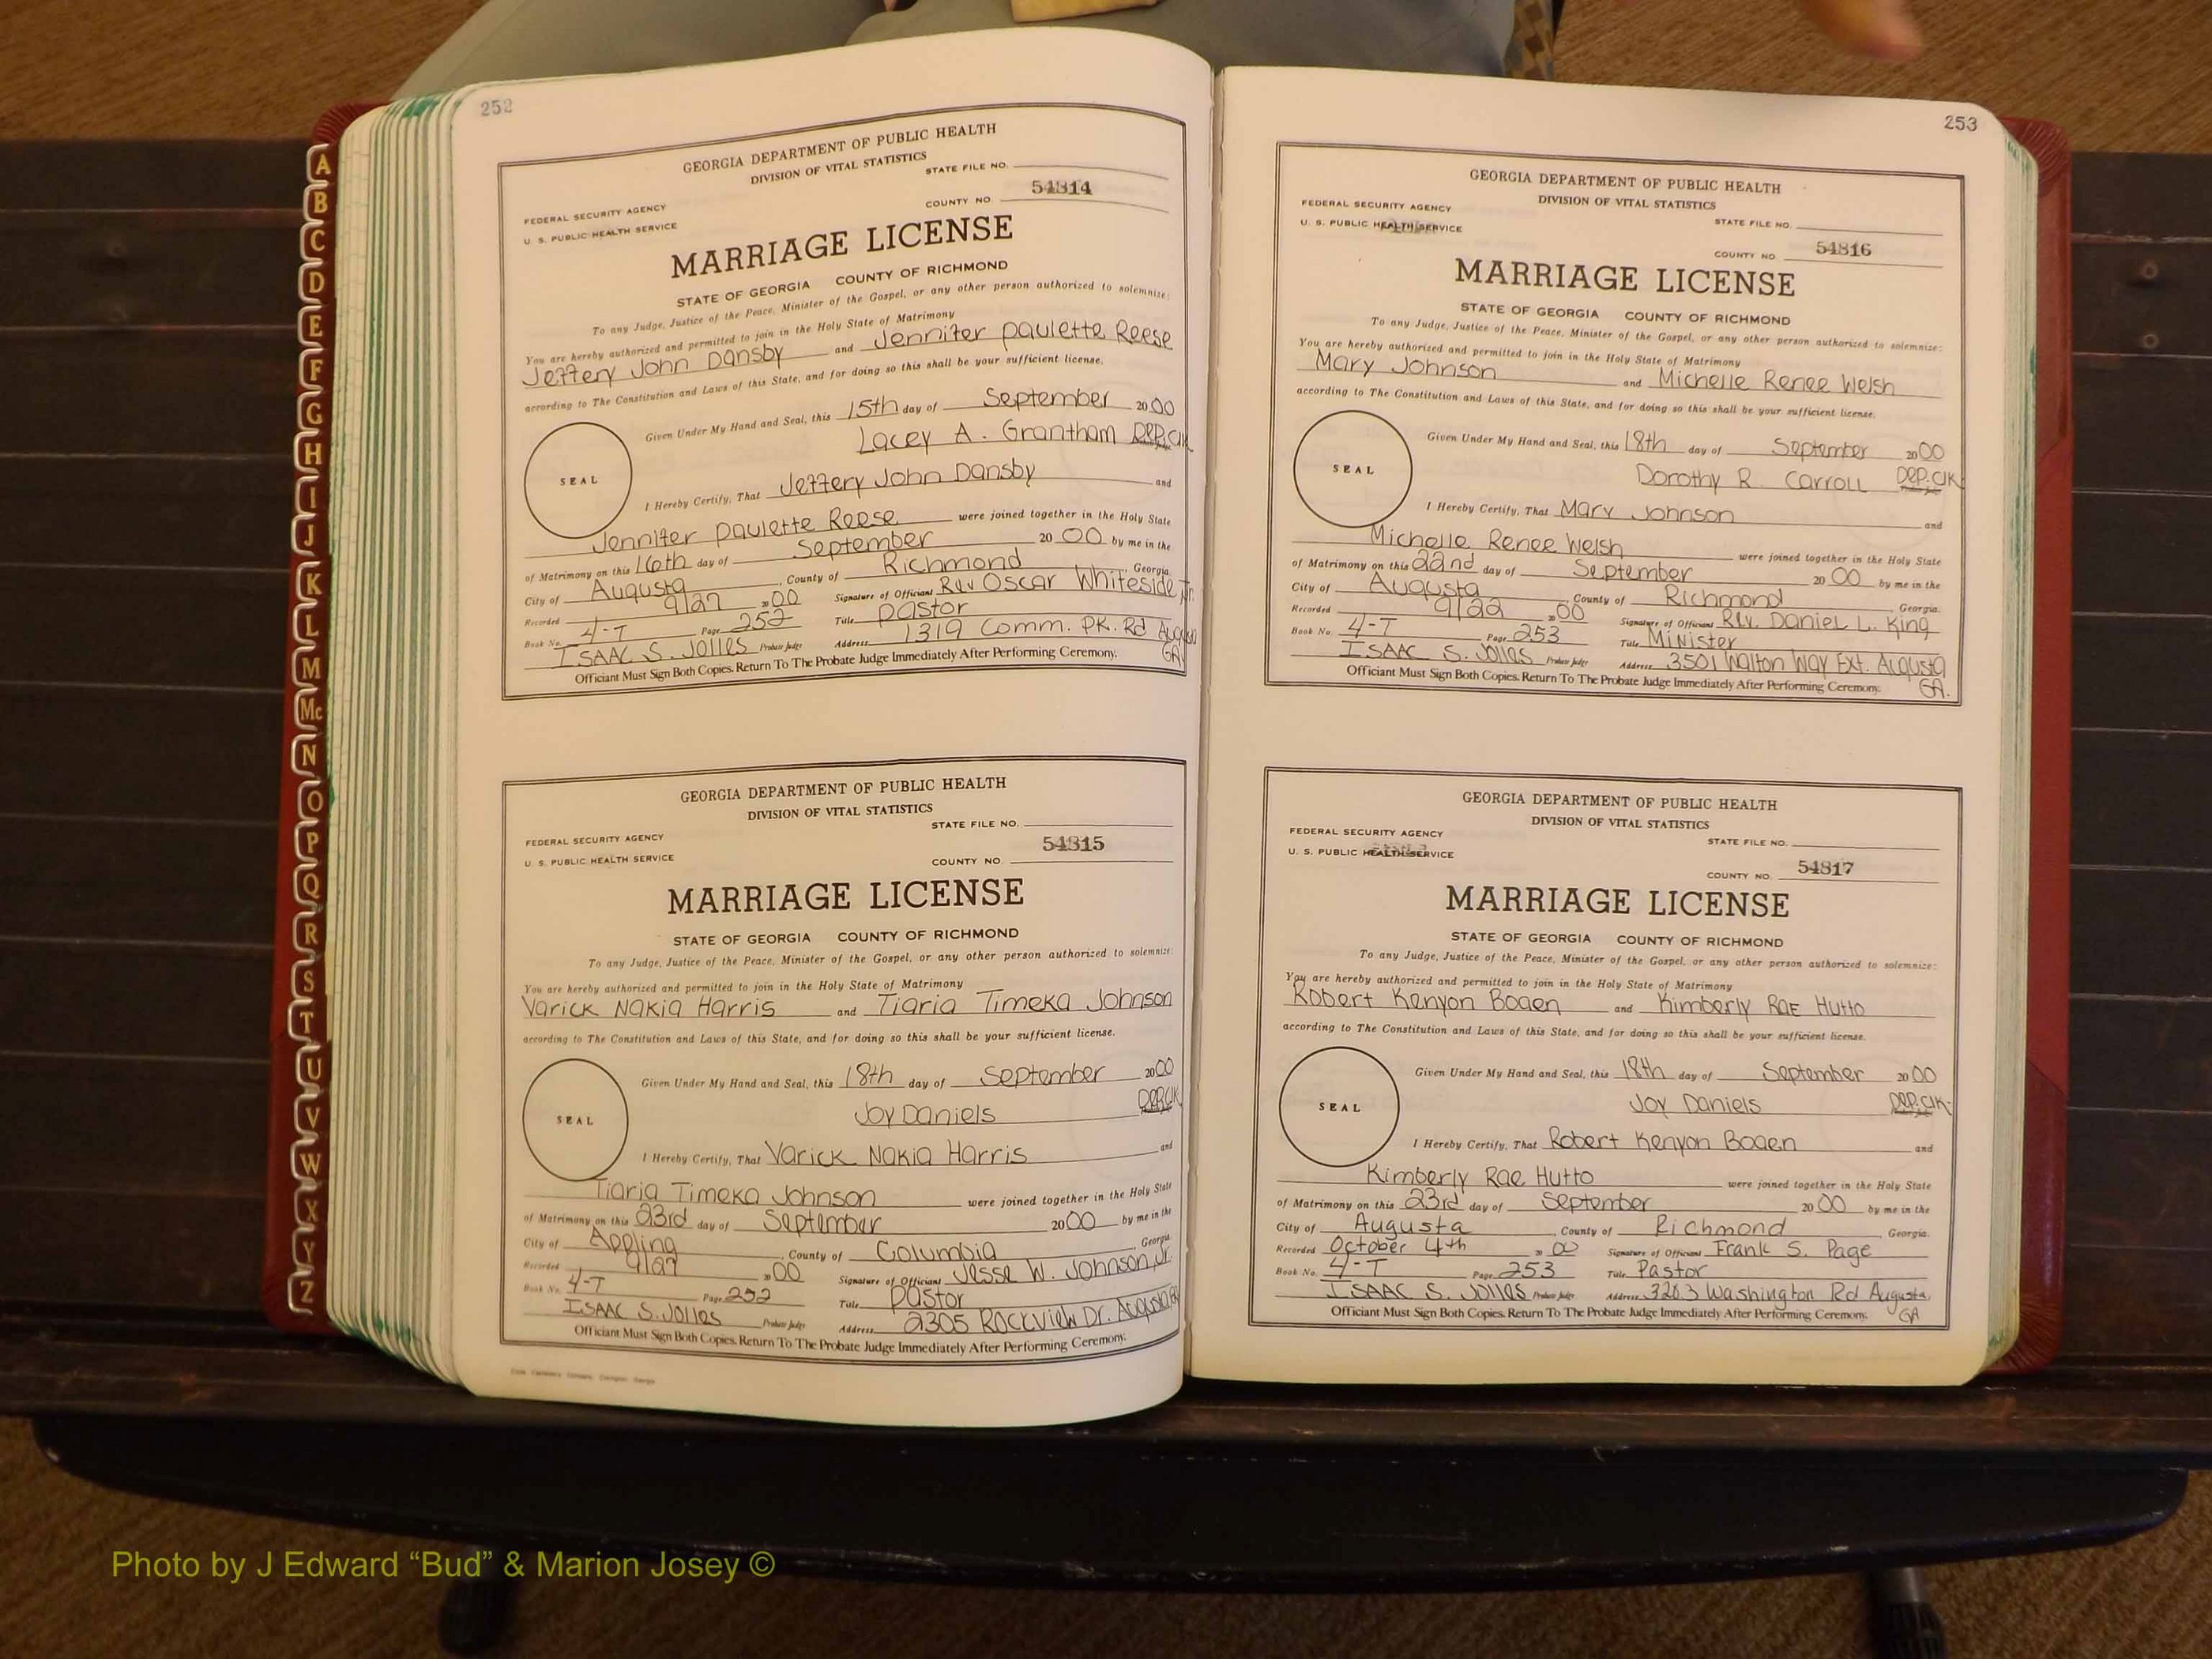 252
GEORGIA DEPARTMENT OF PUBLIC HEALTH
DIVISION OF VITAL STATISTICS
STATE FILE NO.
FEDERAL SECURITY AGENCY
U. S. PUBLIC HEALTH SERVICE
COUNTY NO. 54814
MARRIAGE LICENSE
STATE OF GEORGIA COUNTY OF RICHMOND
To any Judge, Justice of the Peace, Minister of the Gospel, or any other person authorized to solemnize:
You are hereby authorized and permitted to join in the Holy State of Matrimony
Jeffery John Dansby and Jennifer Paulette Reese
according to The Constitution and Laws of this State, and for doing so this shall be your sufficient license.
Given Under My Hand and Seal, this 15th day of September 2000
Lacey A. Grantham Dep. Clk
SEAL
I Hereby Certify, That Jeffery John Dansby and
Jennifer Paulette Reese were joined together in the Holy State
of Matrimony on this 16th day of September 20 00 by me in the
City of Augusta, County of Richmond, Georgia.
Recorded 9/27 2000 Signature of Officiant Rev Oscar Whiteside Jr.
Book No. 4-T Page 252 Title Pastor
Isaac S. Jolles Probate Judge Address 1319 Comm. PK. Rd Augusta GA.
Officiant Must Sign Both Copies. Return To The Probate Judge Immediately After Performing Ceremony.
GEORGIA DEPARTMENT OF PUBLIC HEALTH
DIVISION OF VITAL STATISTICS
STATE FILE NO.
FEDERAL SECURITY AGENCY
U. S. PUBLIC HEALTH SERVICE
COUNTY NO. 54815
MARRIAGE LICENSE
STATE OF GEORGIA COUNTY OF RICHMOND
To any Judge, Justice of the Peace, Minister of the Gospel, or any other person authorized to solemnize:
You are hereby authorized and permitted to join in the Holy State of Matrimony
Varick Nakia Harris and Tiaria Timeka Johnson
according to The Constitution and Laws of this State, and for doing so this shall be your sufficient license.
Given Under My Hand and Seal, this 18th day of September 2000
Joy Daniels Dep Clk
SEAL
I Hereby Certify, That Varick Nakia Harris and
Tiaria Timeka Johnson were joined together in the Holy State
of Matrimony on this 23rd day of September 2000 by me in the
City of Appling, County of Columbia, Georgia.
Recorded 9/27 2000 Signature of Officiant Jesse W. Johnson, Jr.
Book No. 4-T Page 252 Title Pastor
Isaac S. Jolles Probate Judge Address 2305 Rockview Dr. Augusta
Officiant Must Sign Both Copies. Return To The Probate Judge Immediately After Performing Ceremony.
253
GEORGIA DEPARTMENT OF PUBLIC HEALTH
DIVISION OF VITAL STATISTICS
FEDERAL SECURITY AGENCY
U. S. PUBLIC HEALTH SERVICE
STATE FILE NO.
COUNTY NO. 54816
MARRIAGE LICENSE
STATE OF GEORGIA COUNTY OF RICHMOND
To any Judge, Justice of the Peace, Minister of the Gospel, or any other person authorized to solemnize:
You are hereby authorized and permitted to join in the Holy State of Matrimony
Mary Johnson and Michelle Renee Welsh
according to The Constitution and Laws of this State, and for doing so this shall be your sufficient license.
Given Under My Hand and Seal, this 18th day of September 2000
Dorothy R. Carroll Dep. Clk
SEAL
I Hereby Certify, That Mary Johnson and
Michelle Renee Welsh were joined together in the Holy State
of Matrimony on this 22nd day of September 20 00 by me in the
City of Augusta, County of Richmond, Georgia.
Recorded 9/22 2000 Signature of Officiant Rev. Daniel L. King
Book No. 4-T Page 253 Title Minister
Isaac S. Jolles Probate Judge Address 3501 Walton Way Ext. Augusta GA.
Officiant Must Sign Both Copies. Return To The Probate Judge Immediately After Performing Ceremony.
GEORGIA DEPARTMENT OF PUBLIC HEALTH
DIVISION OF VITAL STATISTICS
FEDERAL SECURITY AGENCY
U. S. PUBLIC HEALTH SERVICE
STATE FILE NO.
COUNTY NO. 54817
MARRIAGE LICENSE
STATE OF GEORGIA COUNTY OF RICHMOND
To any Judge, Justice of the Peace, Minister of the Gospel, or any other person authorized to solemnize:
You are hereby authorized and permitted to join in the Holy State of Matrimony
Robert Kenyon Bogen and Kimberly Rae Hutto
according to The Constitution and Laws of this State, and for doing so this shall be your sufficient license.
Given Under My Hand and Seal, this 18th day of September 2000
Joy Daniels Dep. Clk
SEAL
I Hereby Certify, That Robert Kenyon Bogen and
Kimberly Rae Hutto were joined together in the Holy State
of Matrimony on this 23rd day of September 20 00 by me in the
City of Augusta, County of Richmond, Georgia.
Recorded October 4th 2000 Signature of Officiant Frank S. Page
Book No. 4-T Page 253 Title Pastor
Isaac S. Jolles Probate Judge Address 3263 Washington Rd Augusta, GA
Officiant Must Sign Both Copies. Return To The Probate Judge Immediately After Performing Ceremony.
A
B
C
D
E
F
G
H
I
J
K
L
M
Mc
N
O
P
Q
R
S
T
U
V
W
X
Y
Z
Photo by J Edward “Bud” & Marion Josey ©